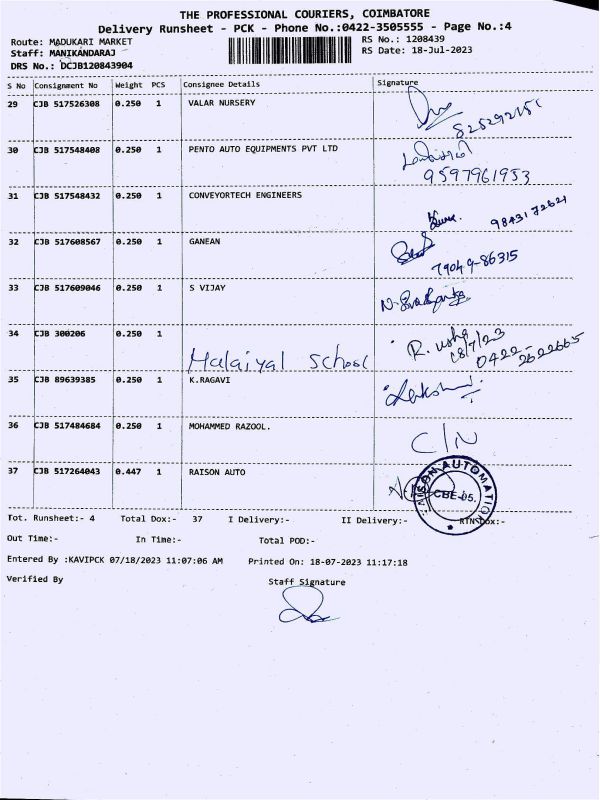 THE PROFESSIONAL COURIERS, COIMBATORE
Delivery Runsheet - PCK - Phone No.:0422-3505555 - Page No.:4
Route: MADUKARI MARKET RS No.: 1208439
Staff: MANIKANDARAJ RS Date: 18-Jul-2023
DRS No.: DCJB120843904
S No Consignment No Weight PCS Consignee Details Signature
29 CJB 517526308 0.250 1 VALAR NURSERY
30 CJB 517548408 0.250 1 PENTO AUTO EQUIPMENTS PVT LTD
9597961953
31 CJB 517548432 0.250 1 CONVEYORTECH ENGINEERS
98431 72621
32 CJB 517608567 0.250 1 GANEAN
79049-86315
33 CJB 517609046 0.250 1 S VIJAY
34 CJB 300206 0.250 1
Malaiyal School R. usha 18/7/23 0422-2622665
35 CJB 89639385 0.250 1 K.RAGAVI
36 CJB 517484684 0.250 1 MOHAMMED RAZOOL.
C/N
37 CJB 517264043 0.447 1 RAISON AUTO
RAISON AUTOMATION CBE-05.
Tot. Runsheet:- 4 Total Dox:- 37 I Delivery:- II Delivery:- RTNSDox:-
Out Time:- In Time:- Total POD:-
Entered By :KAVIPCK 07/18/2023 11:07:06 AM Printed On: 18-07-2023 11:17:18
Verified By Staff Signature